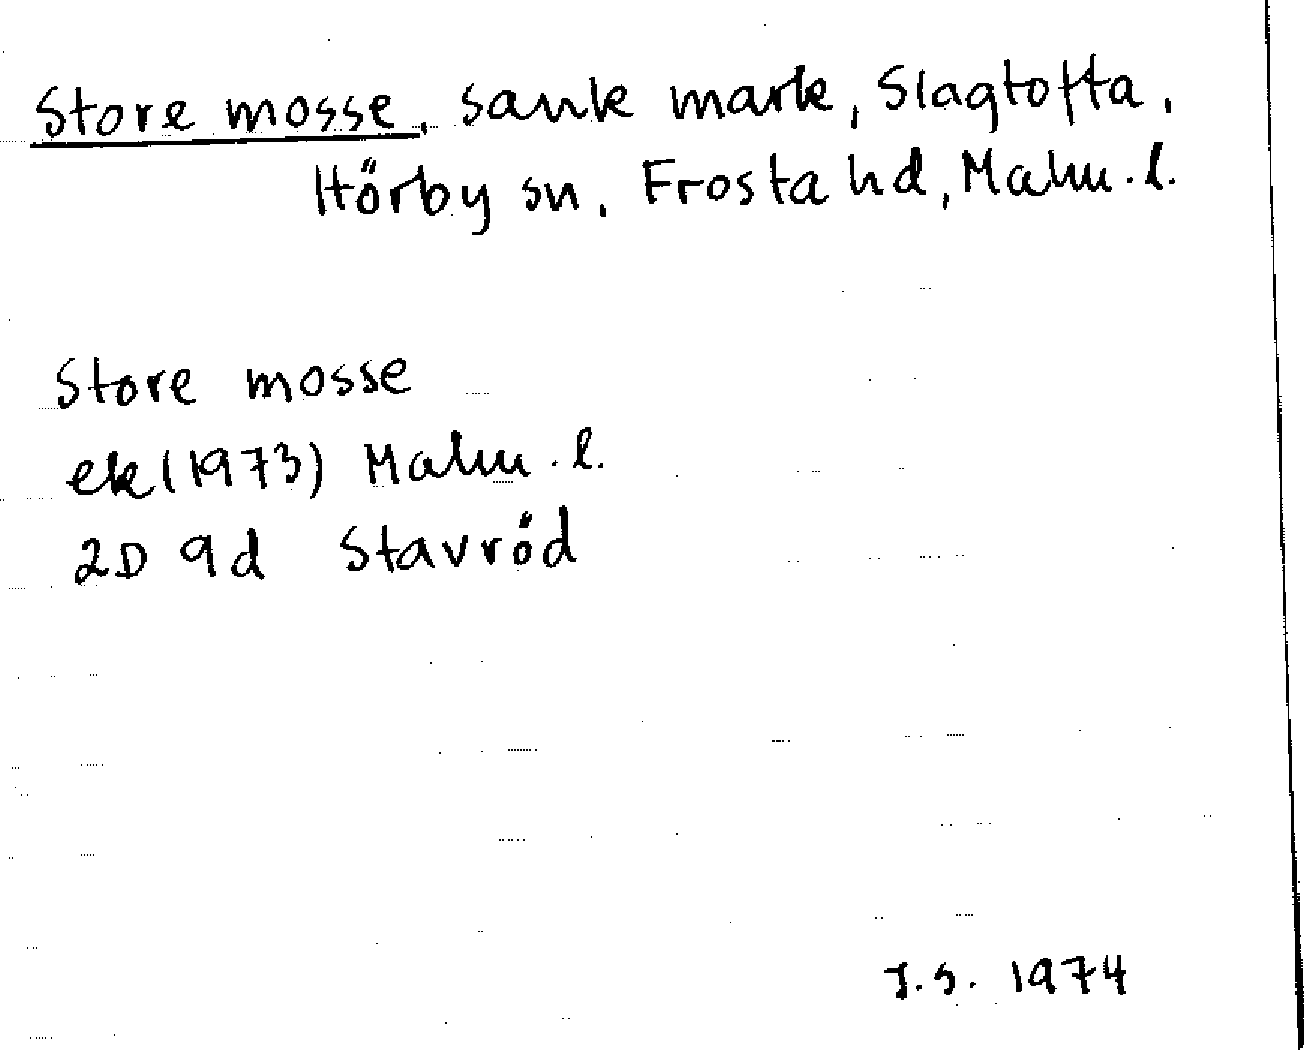 Store mosse, sank mark, Slagtofta,
Hörby sn, Frosta hd, Malm. l.
Store mosse
ek (1973) Malm. l.
2D 9d Stavröd
J.S. 1974